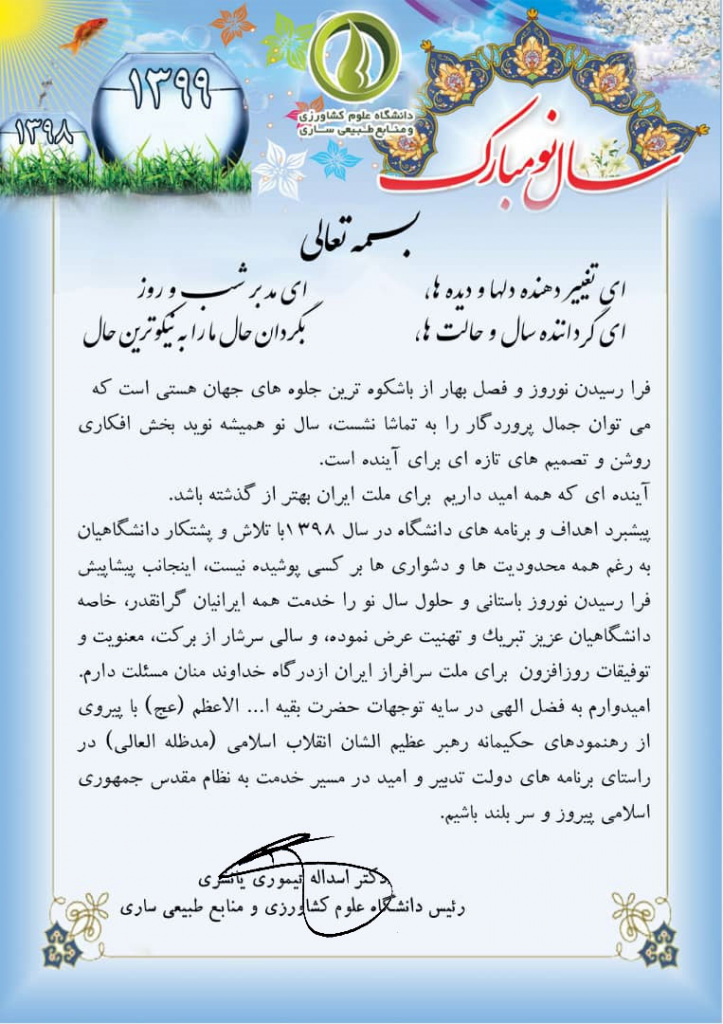 ۱۳۹۹
۱۳۹۸
دانشگاه علوم کشاورزی
و منابع طبیعی ساری
سال نو مبارک
بسمه تعالی
ای تغییر دهنده دلها و دیده ها، ای مدبر شب و روز
ای گرداننده سال و حالت ها، بگردان حال ما را به نیکوترین حال
فرا رسیدن نوروز و فصل بهار از باشکوه ترین جلوه های جهان هستی است که
می توان جمال پروردگار را به تماشا نشست، سال نو همیشه نوید بخش افکاری
روشن و تصمیم های تازه ای برای آینده است.
آینده ای که همه امید داریم برای ملت ایران بهتر از گذشته باشد.
پیشبرد اهداف و برنامه های دانشگاه در سال ۱۳۹۸با تلاش و پشتکار دانشگاهیان
به رغم همه محدودیت ها و دشواری ها بر کسی پوشیده نیست، اینجانب پیشاپیش
فرا رسیدن نوروز باستانی و حلول سال نو را خدمت همه ایرانیان گرانقدر، خاصه
دانشگاهیان عزیز تبریك و تهنیت عرض نموده، و سالی سرشار از برکت، معنویت و
توفیقات روزافزون برای ملت سرافراز ایران ازدرگاه خداوند منان مسئلت دارم.
امیدوارم به فضل الهی در سایه توجهات حضرت بقیه ا... الاعظم (عج) با پیروی
از رهنمودهای حکیمانه رهبر عظیم الشان انقلاب اسلامی (مدظله العالی) در
راستای برنامه های دولت تدبیر و امید در مسیر خدمت به نظام مقدس جمهوری
اسلامی پیروز و سر بلند باشیم.
دکتر اسداله تیموری یانسری
رئیس دانشگاه علوم کشاورزی و منابع طبیعی ساری